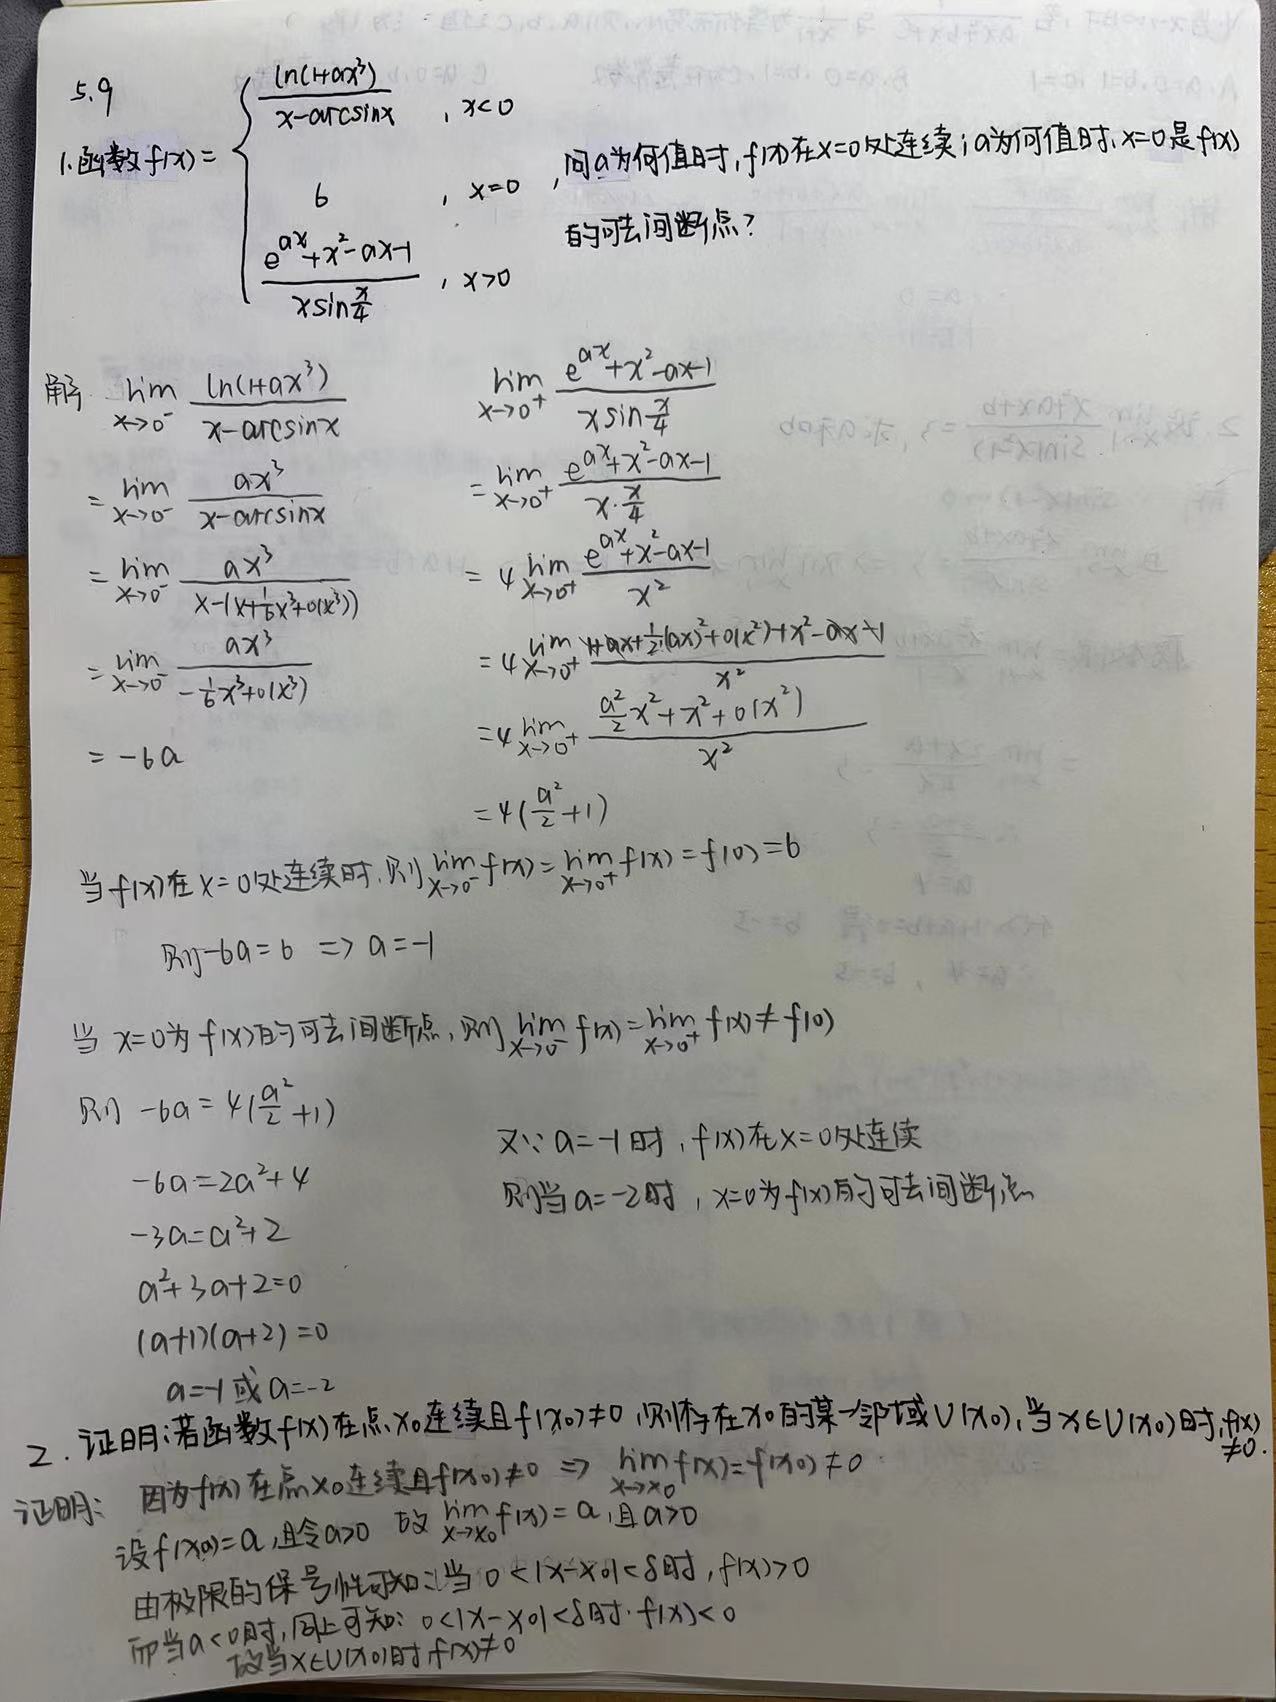 5.9
1.函数f(x)= { ln(1+ax³)/(x-arcsinx) , x<0
6 , x=0
(e^(ax)+x²-ax-1)/(x sin(x/4)) , x>0
,问a为何值时,f(x)在x=0处连续;a为何值时,x=0是f(x)
的可去间断点?
解 lim(x→0⁻) ln(1+ax³)/(x-arcsinx)
= lim(x→0⁻) ax³/(x-arcsinx)
= lim(x→0⁻) ax³/(x-(x+1/6x³+o(x³)))
= lim(x→0⁻) ax³/(-1/6x³+o(x³))
= -6a
lim(x→0⁺) (e^(ax)+x²-ax-1)/(x sin(x/4))
= lim(x→0⁺) (e^(ax)+x²-ax-1)/(x·x/4)
= 4 lim(x→0⁺) (e^(ax)+x²-ax-1)/x²
= 4 lim(x→0⁺) (1+ax+1/2(ax)²+o(x²)+x²-ax-1)/x²
= 4 lim(x→0⁺) (a²/2 x²+x²+o(x²))/x²
= 4(a²/2+1)
当f(x)在x=0处连续时,则lim(x→0⁻)f(x)=lim(x→0⁺)f(x)=f(0)=6
则-6a=6 => a=-1
当x=0为f(x)的可去间断点,则lim(x→0⁻)f(x)=lim(x→0⁺)f(x)≠f(0)
则 -6a=4(a²/2+1)
-6a=2a²+4
-3a=a²+2
a²+3a+2=0
(a+1)(a+2)=0
a=-1或a=-2
又∵a=-1时,f(x)在x=0处连续
则当a=-2时,x=0为f(x)的可去间断点
2.证明:若函数f(x)在点x₀连续且f(x₀)≠0,则存在x₀的某一邻域U(x₀),当x∈U(x₀)时,f(x)
≠0.
证明: 因为f(x)在点x₀连续且f(x₀)≠0 => lim(x→x₀)f(x)=f(x₀)≠0
设f(x₀)=a,且令a>0 故lim(x→x₀)f(x)=a,且a>0
由极限的保号性可知:当0<|x-x₀|<δ时,f(x)>0
而当a<0时,同上可知:0<|x-x₀|<δ时.f(x)<0
故当x∈U(x₀)时,f(x)≠0